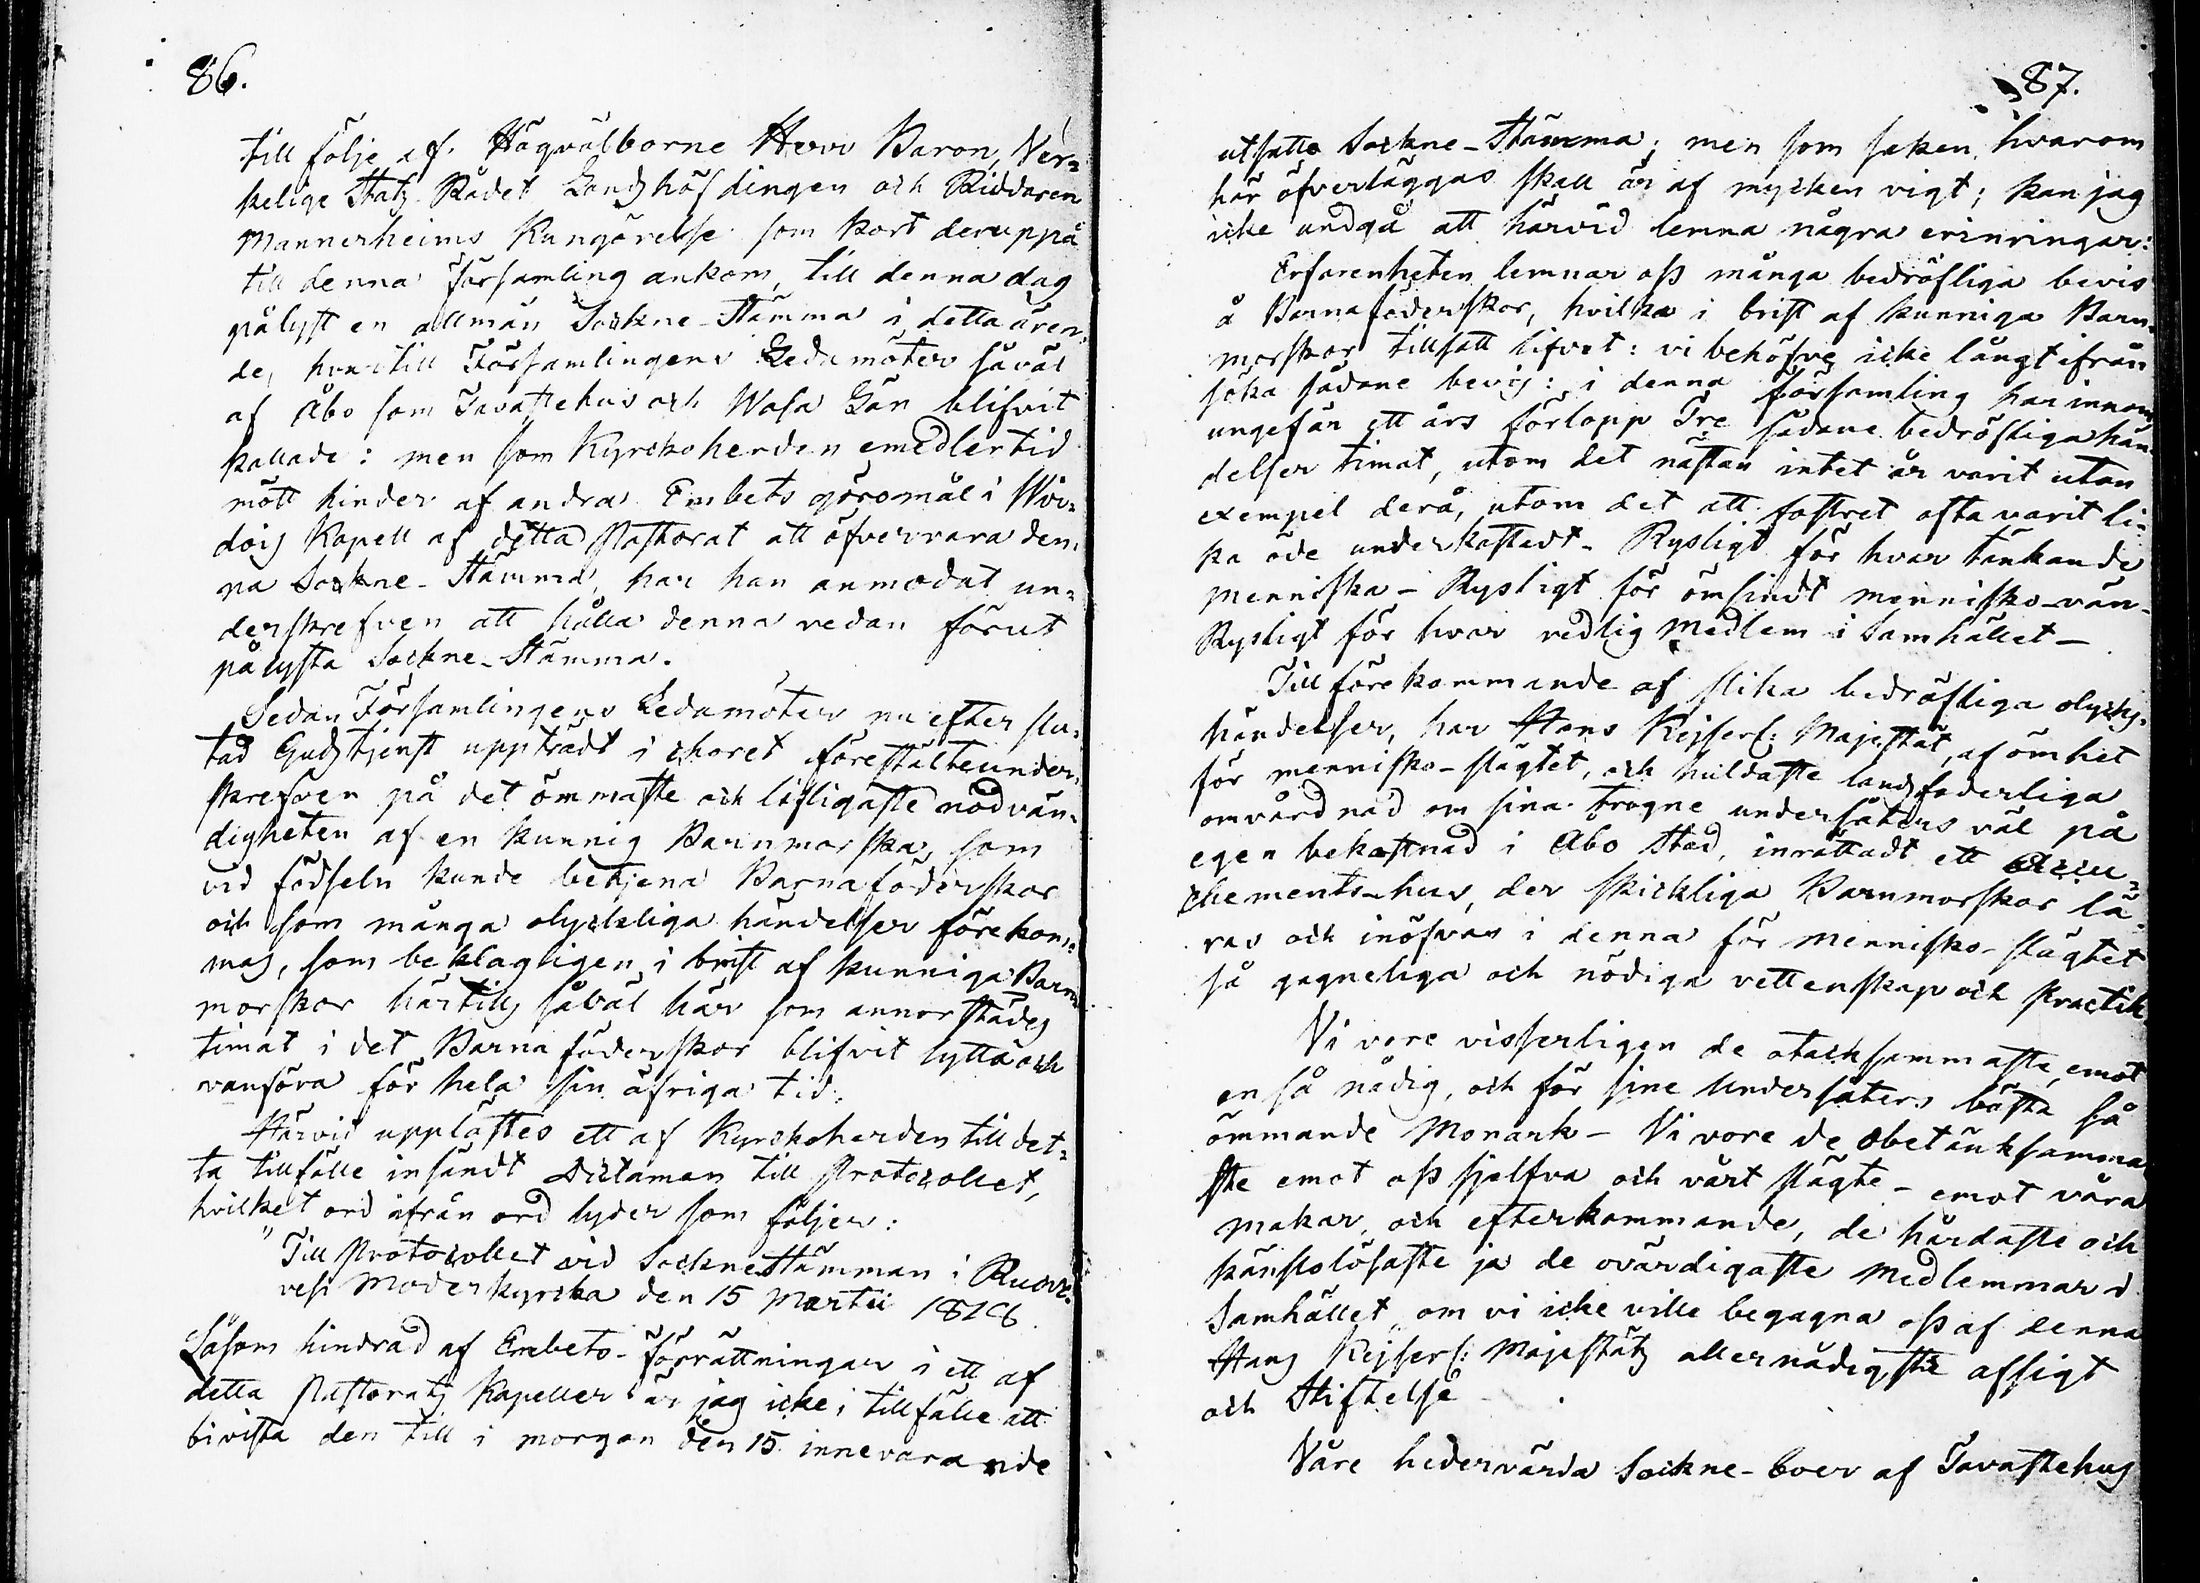 86.
till följe af Högvälborne Herr Baron, Ver=
kelige Stats Rådet Landshöfdingen och Riddaren
Mannerheims Kungörelse som kort deruppå
till denna församling ankom, till denna dag
pålyst en allmän Sockne-Stämma i detta ären=
de, hvartill Församlingens Ledamöter såväl
af Åbo som Tavastehus och Wasa Län blifvit
kallade: men som Kyrckoherden emedlertid
mött hinder af andra Embets göromål i Wir=
dois Kapell af detta Pastorat att öfvervara den=
na Sockne-Stämma, har han anmodat un=
derskrefven att hålla denna redan förut
pålysta Sockne-Stämma.
Sedan Församlingens Ledamöter nu efter slu=
tad Gudstjenst uppträdt i choret förestälte under=
skrefven på det ömmaste och lifligaste nödvän=
digheten af en kunnig Barnmorska, som
vid födseln kunde betjena Barnaföderskor
och som många olyckliga händelser förekom=
mas, som beklagligen i brist af kunniga Barn=
morskor härtills såväl här som annorstädes
timat i det Barnaföderskor blifvit lytta och
vanföra för hela sin öfriga tid.
Härvid upplästes ett af Kyrckoherden till det=
ta tillfälle insändt Dictamen till Protocollet,
hvilket ord ifrån ord lyder som följer:
"Till Protocollet vid Socknestämman i Ruove=
vesi Moderkyrcka den 15 Martii 1826.
Såsom hindrad af Embets-förrättningar i ett af
detta Pastorats Kapeller är jag icke i tillfälle att
bivista den till i morgon den 15 innevarande
87.
utsatte Sockne-Stämma; men som saken hvarom
här öfverläggas skall är af mycken vigt; kan jag
icke undgå att härvid lemna några erinringar:
Erfarenheten lemnar oss många bedröfliga bevis
å Barnaföderskor, hvilka i brist af kunniga Barn=
morskor tillsatt lifvet: vi behöfve icke långt ifrån
söka sådane bevis: i denna församling har innom
ungefär ett års förlopp Tre sådane bedröfliga hän
delser timat, utom det nästan intet år varit utan
exempel derå, utom det att fostret ofta varit li=
ka öde underkastadt - Rysligt för hvar tänkande
menniska - Rysligt för ömsindt mennisko-vän -
Rysligt för hvar redlig medlem i Samhället -
Till förekommande af slika bedröfliga olycks=
händelser, har Hans Kejserl: Majestät, af ömhet
för mennisko-slägtet, och huldaste landsfaderliga
omvårdnad om sina trogne undersåters väl på
egen bekostnad i Åbo Stad, inrättadt ett Accu=
chements-hus, der skickliga Barnmorskor lä=
ras och inöfvas i denna för mennisko-slägtet
så gagneliga och nödiga vettenskap och Practik
Vi vore visserligen de otacksammaste, emot
en så nådig, och för sine Undersåters bästa så
ömmande Monark - Vi vore de obetänksamma
ste emot oss sjelfva och vårt slägte - emot våra
makar, och efterkommande, de hårdaste och
känslolösaste ja de ovärdigaste medlemmar i
Samhället, om vi icke ville begagna oss af denna
Hans Kejserl: Majestäts allernådigste afsigt
och Stiftelse
Våre hedervärda Sockne-boer af Tavastehus